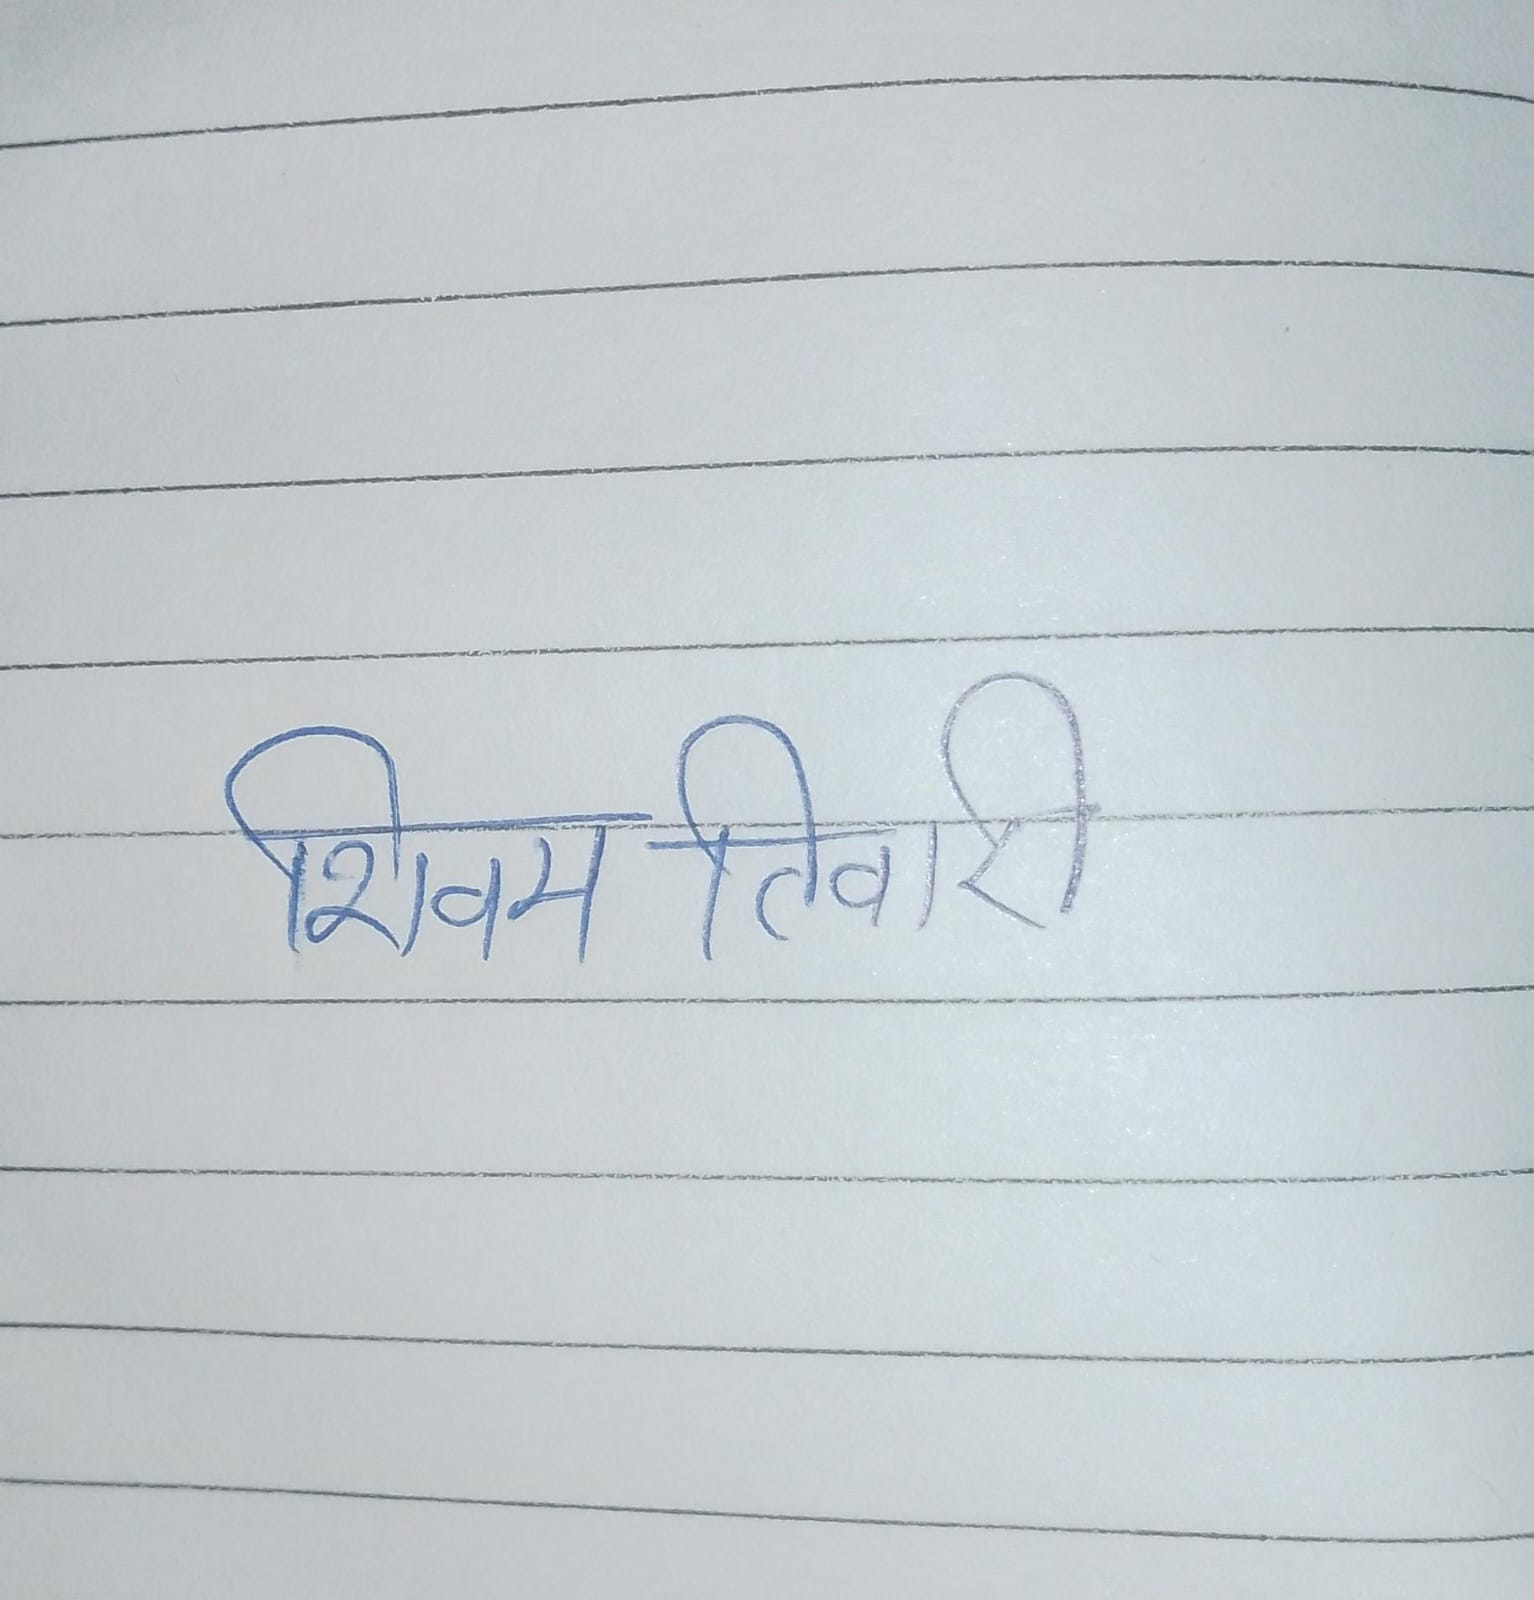 शिवम तिवारी